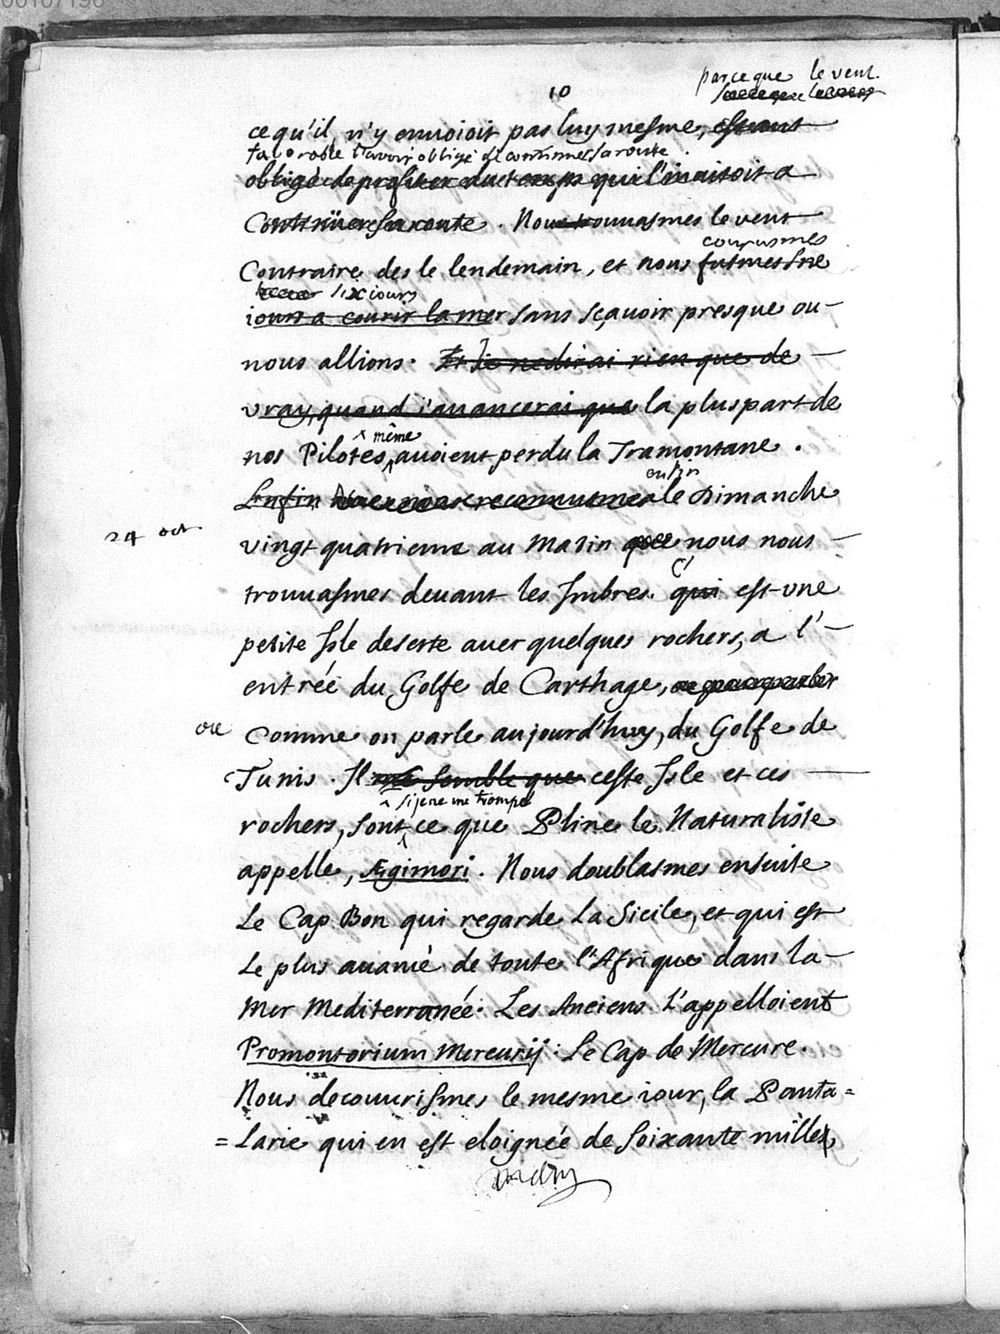 00107196
10
parceque le vent
ce qu'il n'y enuoioit pas luy mesme, estant
fauorable l'auoir obligé de continuer sa route.
obligé de profiter du temps qui l'inuitoit a
Continüer sa route. Nous trouuasmes le vent
courusmes
Contraire des le lendemain, et nous fusmes
six iours
iours a courir la mer sans sçauoir presque ou
nous allions. Et Je ne dirai rien que de
vray, quand i'auancerai que la pluspart de
même
nos Pilotes, auoient perdu la Tramontane.
enfin
Enfin nous reconnusmes le Dimanche
24 oct
vingt quatrieme au Matin que nous nous
trouuasmes deuant les Imbres. qui est vne
C'
petite Isle deserte auec quelques rochers, a l'
entrée du Golfe de Carthage,
ou
Comme on parle aujourd'huy, du Golfe de
Tunis. Il me semble que ceste Isle et ces
si je ne me trompe
rochers, sont ce que Pline le Naturaliste
appelle, Ægimori. Nous doublasmes ensuite
Le Cap Bon qui regarde La Sicile, et qui est
Le plus auancé de toute l'Afrique dans la
Mer Mediterranée. Les Anciens L'appelloient
Promontorium Mercurij. Le Cap de Mercure.
Nous decouurismes le mesme iour, la Panta=
=Larie qui en est eloignée de soixante milles,